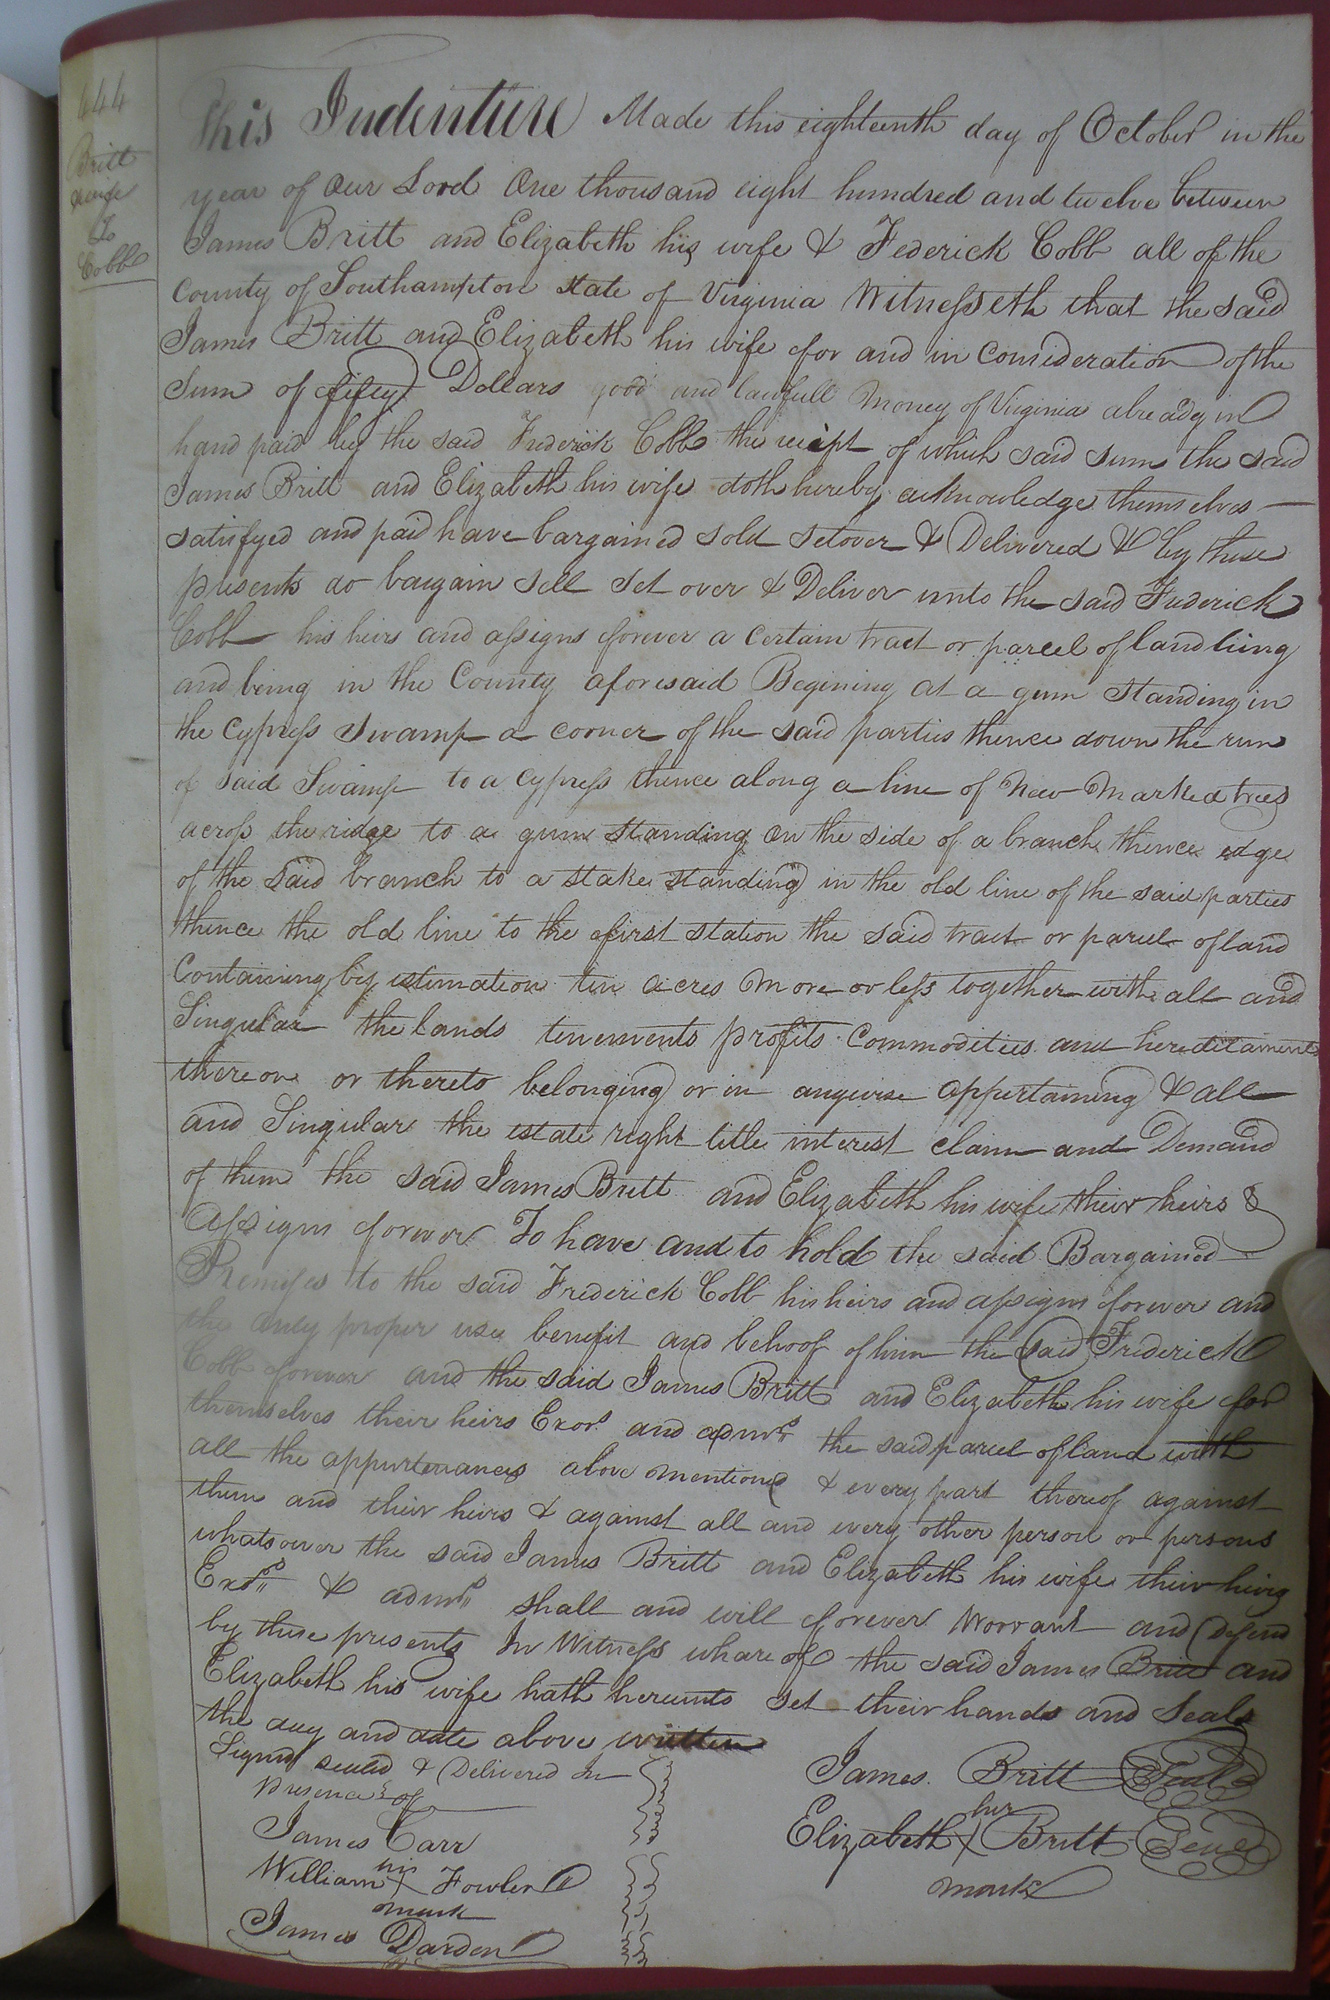 444
Britt
& wife
To
Cobb
This Indenture Made this eighteenth day of October in the
year of our Lord One thousand eight hundred and twelve between
James Britt and Elizabeth his wife & Federick Cobb all of the
County of Southampton state of Virginia Witnesseth that the said
James Britt and Elizabeth his wife for and in consideration of the
Sum of fifty Dollars good and lawfull money of Virginia already in
hand paid by the said Frederick Cobb the reciept of which said sum the said
James Britt and Elizabeth his wife doth hereby acknowledge themselves —
satisfyed and paid have bargained sold setover & Delivered & by these
presents do bargain sell set over & Deliver unto the said Frederick
Cobb his heirs and assigns forever a certain tract or parcel of land liing
and being in the County aforesaid Begining at a gum standing in
the Cypress Swamp a corner of the said parties thence down the run
of said Swamp to a Cypress thence along a line of New Marked trees
across the ridge to a gum standing on the side of a branch thence edge
of the said branch to a stake standing in the old line of the said parties
thence the old line to the first station the said tract or parcel of land
Containing by estimation ten acres more or less together with all and
Singular the lands tenements profits commodities and hereditaments
thereon or thereto belonging or in anywise appertaining & all
and Singular the estate right title interest claim and Demand
of them the said James Britt and Elizabeth his wife their heirs &
Assigns forever To have and to hold the said Bargained
Premises to the said Frederick Cobb his heirs and assigns forever and
the only proper use benefit and behoof of him the said Frederick
Cobb forever and the said James Britt and Elizabeth his wife for
themselves their heirs Exors. and admrs. the said parcel of land with
all the appurtenances above mentioned & every part thereof against
them and their heirs & against all and every other person or persons
whatsoever the said James Britt and Elizabeth his wife their heirs
Exrs. & admrs. shall and will forever Worrant and Defend
by these presents In Witness whareof the said James Britt and
Elizabeth his wife hath hereunto set their hands and Seals
the day and date above written
Signed sealed & Delivered In
Presence of
James Britt Seal
her
Elizabeth X Britt Seal
mark
James Carr
his
William X Fowler
mark
James Darden